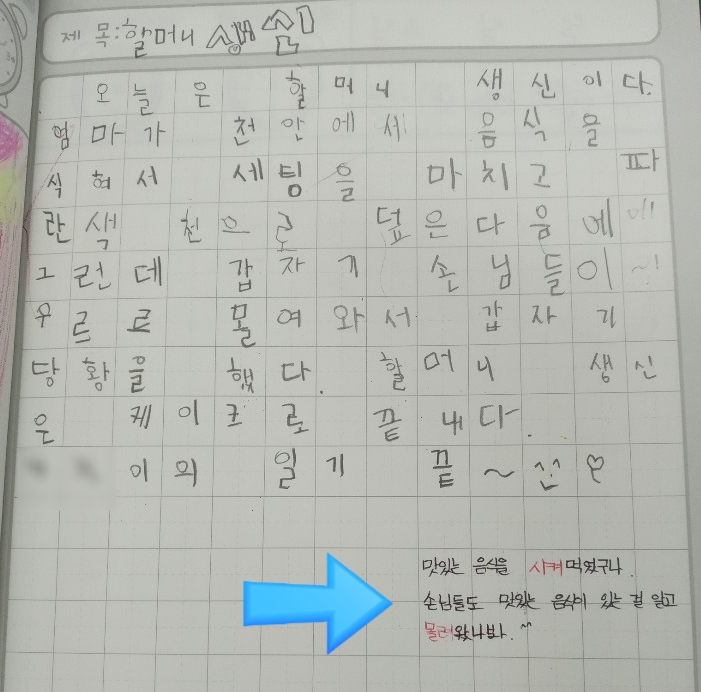 제 목:할머니 생신
오늘은 할머니 생신이다.
엄마가 천안에서 음식을
식혀서 세팅을 마치고 파
란색 천으로 덮은다음에
그런데 갑자기 손님들이~!
우르르 몰여와서 갑자기
당황을 했다. 할머니 생신
은 케이크로 끝내다.
이의 일기 끝~ ^^ ♡
맛있는 음식을 시켜먹었구나.
손님들도 맛있는 음식이 있는 걸 알고
몰려왔나봐. ^^